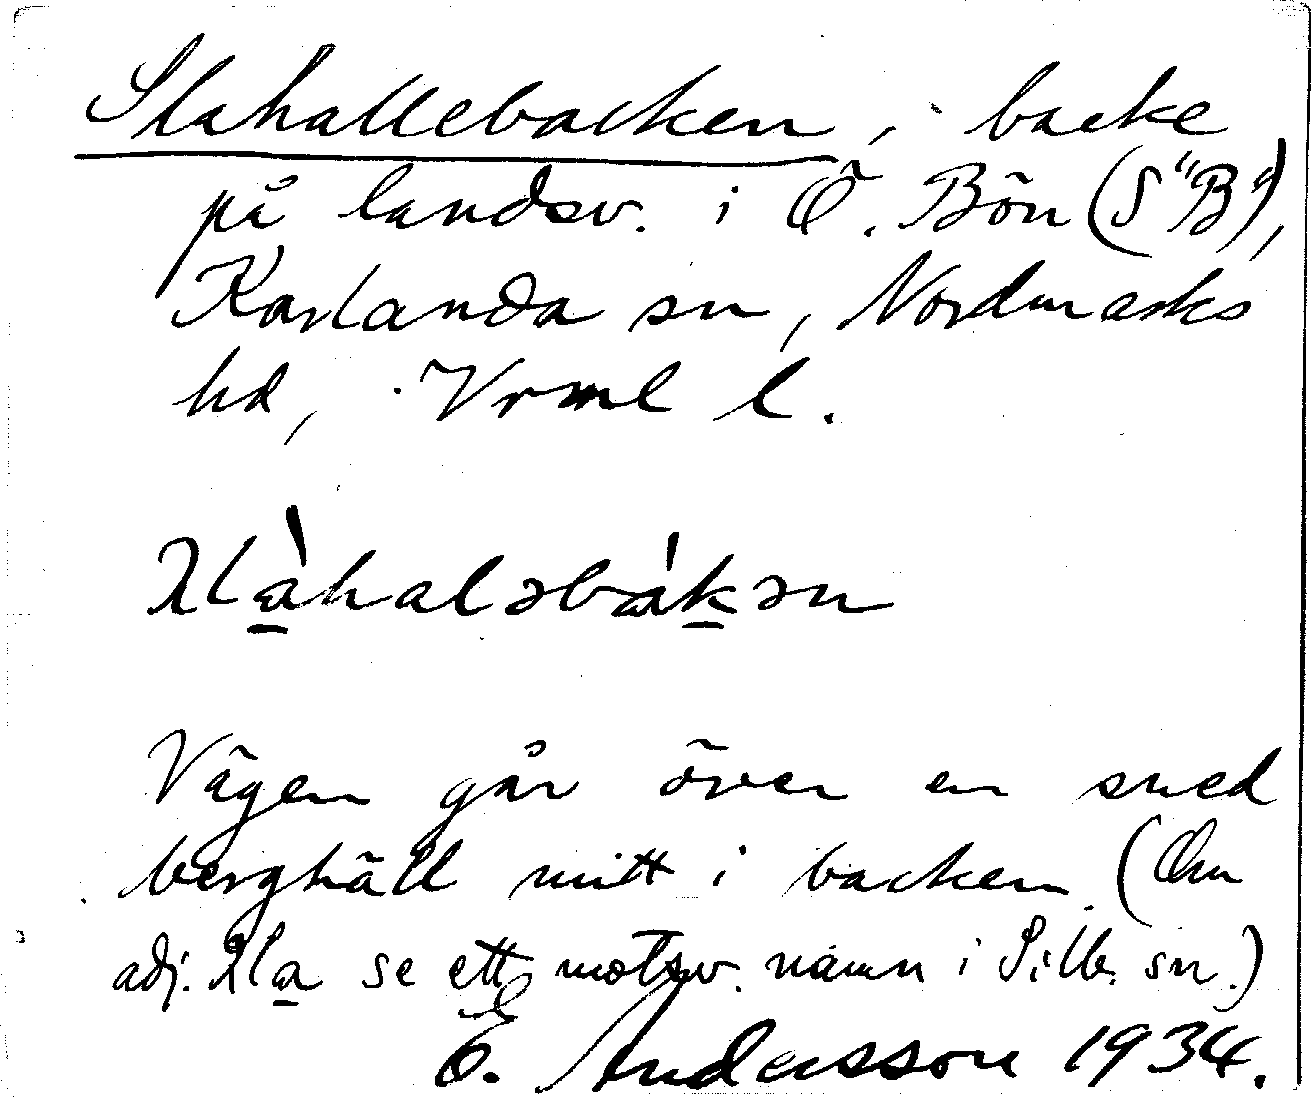 Slahallebacken, backe
på landsv. i Ö. Bön (S "B"),
Karlanda sn, Nordmarks
hd, Vrml l.
Vägen går över en sned
berghäll mitt i backen. (Om
adj. se ett motsv. namn i Sillb. sn.)
E. Andersson 1934.